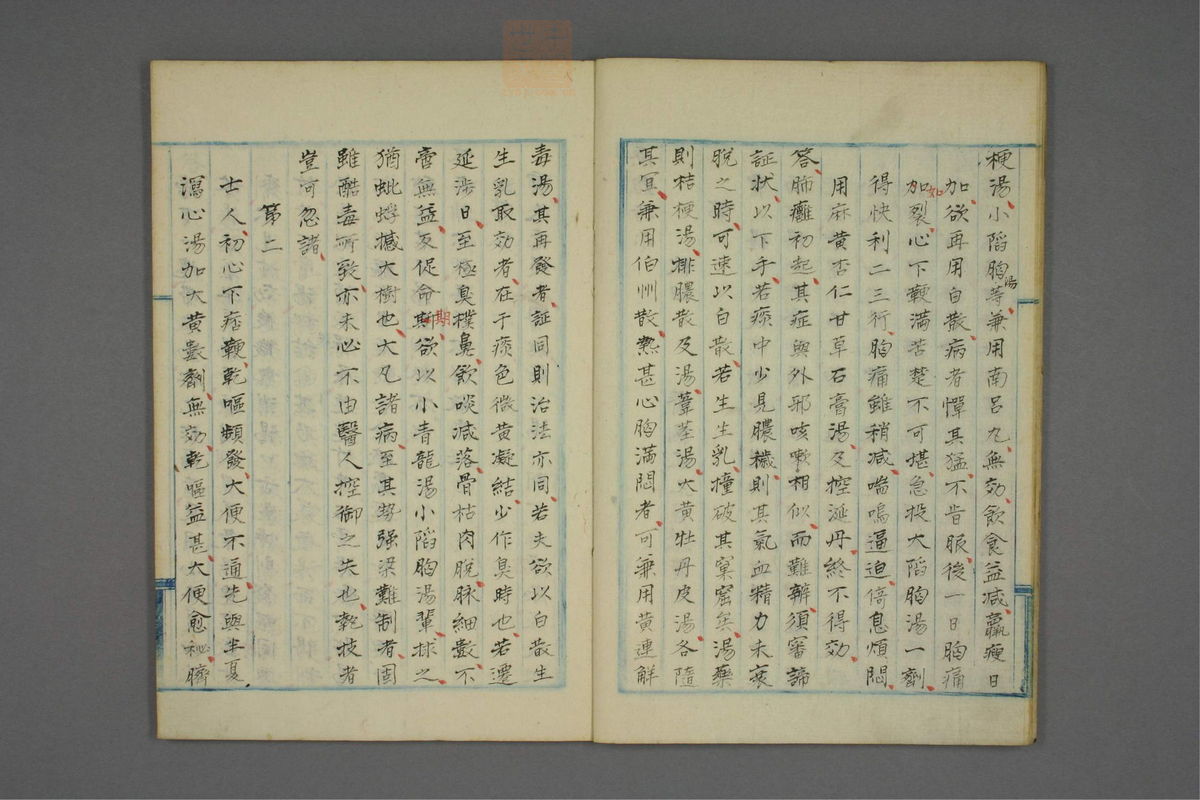 梗湯、小陷胸湯等、兼用南呂丸、無効、飲食益減、羸瘦日
加、欲再用白散、病者憚其猛、不肯服、後一日胸痛
加裂、如心下鞕滿、苦楚不可堪、急投大陷胸湯一劑、
得快利二三行、胸痛雖稍減、喘鳴逼迫、倚息煩悶、
用麻黃杏仁甘草石膏湯、及控涎丹、終不得効、
答、肺癰初起、其症與外邪咳嗽相似、而難辨、須審諦
証狀、以下手、若痰中少見膿穢、則其氣血精力未衰
脫之時、可速以白散、若生生乳、撞破其窠窟矣、湯藥
則桔梗湯、排膿散及湯、葦莖湯、大黃牡丹皮湯、各隨
其宜、兼用伯州散、熱甚心胸滿悶者、可兼用黃連解
毒湯、其再發者、証同則治法亦同、若夫欲以白散生
生乳取効者、在于痰色微黃凝結、少作臭時也、若遷
延涉日、至極臭撲鼻、飲啖減落、骨枯肉脫、脉細數、不
啻無益、反促命期斯、欲以小青龍湯小陷胸湯輩、拯之、
猶蚍蜉撼大樹也、大凡諸病至其勢强梁難制者、固
雖酷毒所致、亦未必不由醫人控御之失也、乾技者
豈可忽諸、
第二
士人、初心下痞鞕、乾嘔頻發、大便不通、先與半夏
瀉心湯加大黃數劑、無効、乾嘔益甚、大便愈秘、臍